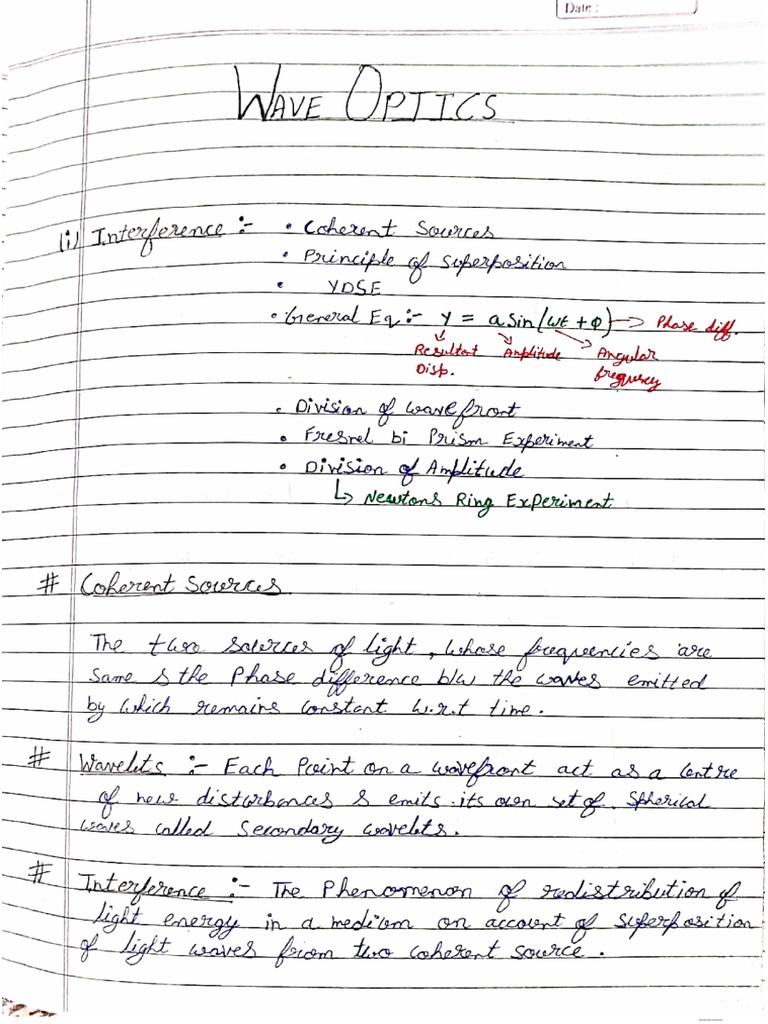 Date :
WAVE OPTICS
(i) Interference :- • Coherent Sources
• Principle of Superposition
• YDSE
• General Eq :- y = a sin(wt + φ) → Phase diff.
Resultant Disp. Amplitude Angular frequency
• Division of wavefront
• Fresnel bi Prism Experiment
• Division of Amplitude
↳ Newtons Ring Experiment
# Coherent Sources
The two sources of light, whose frequencies are
same & the Phase difference b/w the waves emitted
by which remains constant w.r.t time.
# Wavelets :- Each Point on a wavefront act as a centre
of new disturbances & emits its own set of spherical
waves called secondary wavelets.
# Interference :- The Phenomenon of redistribution of
light energy in a medium on account of superposition
of light waves from two coherent source.